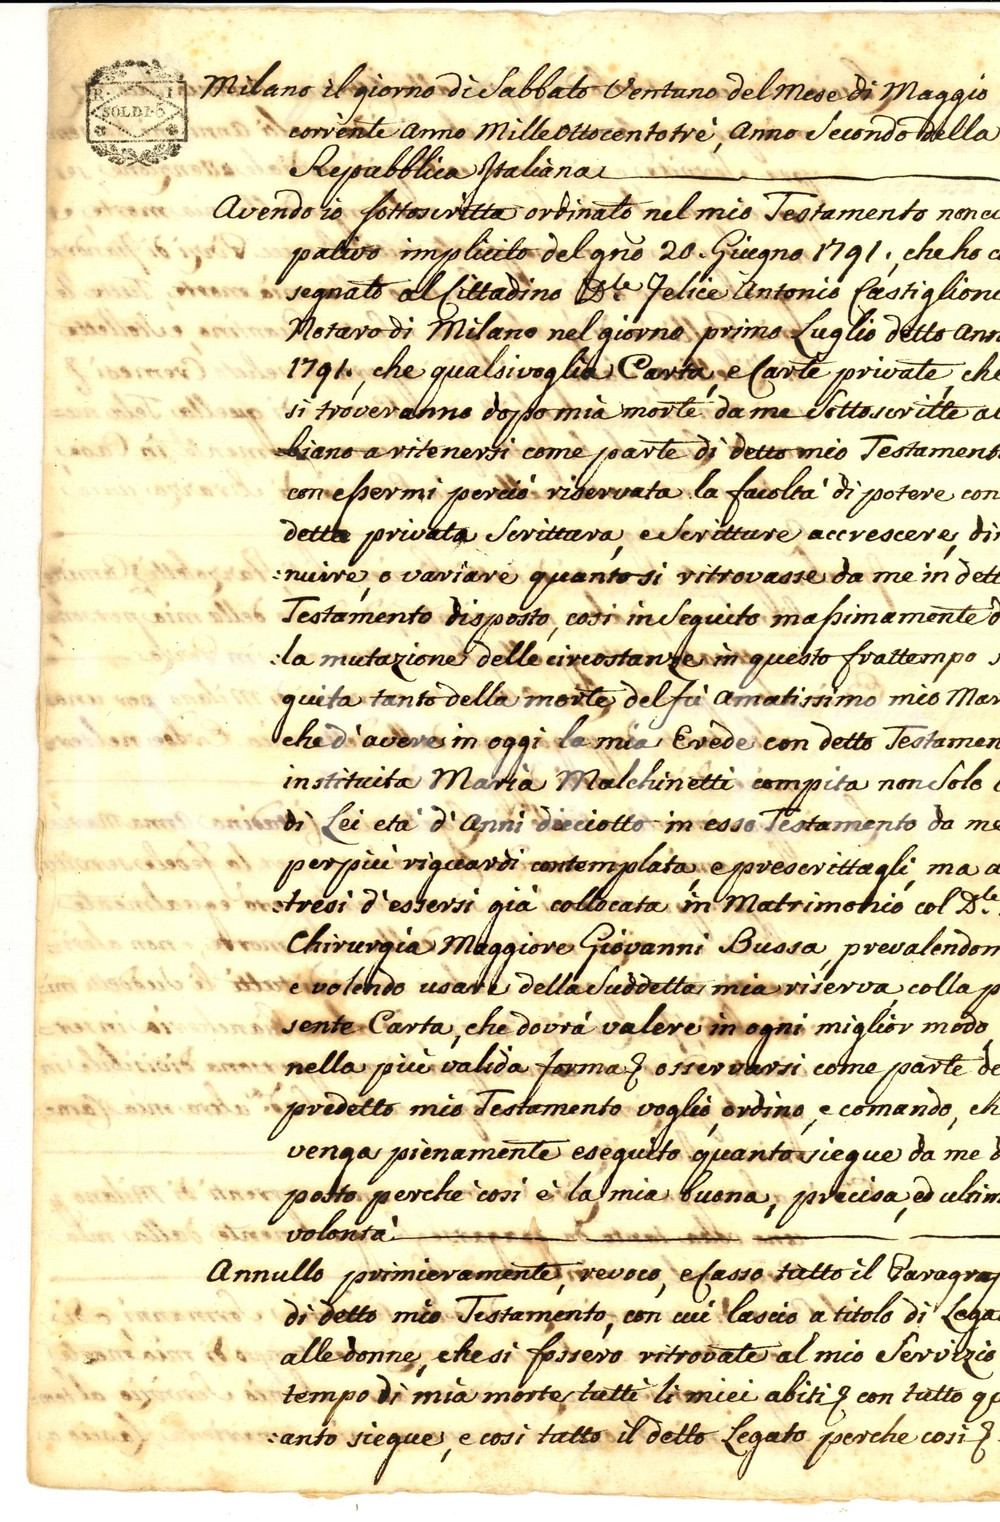 R. I.
SOLDI 6
Milano il giorno di Sabbato Ventuno del Mese di Maggio
corrente Anno Mille ottocento trè, Anno Secondo della
Repubblica Italiana
Avendo io sottoscritta ordinato nel mio Testamento noncu
pativo implicito del gño 20. Giugno 1791., che ho c
segnato al Cittadino D.te Felice Antonio Castiglioni
Notaro di Milano nel giorno primo Luglio detto Ann
1791., che qualsivoglia Carta, e Carte private, che
si troveranno dopo mia morte, da me Sottoscritte a
biano a ritenersi come parte di detto mio Testament
con essermi perciò riservata la facoltà di potere con
detta privata Scrittura, e Scritture accrescere, di
:nuire, o variare quanto si ritrovasse da me in dett
Testamento disposto, così in Seguito massimamente d
:la mutazione delle circostanze in questo frattempo s
guita tanto della morte del fù Amatissimo mio Mar
che d'avere in oggi la mia Erede con detto Testamen
instituita Maria Malchinetti compita non Solo
di Lei età d'Anni dieciotto in esso Testamento da me
per più riguardi contemplata, e prescrittagli, ma a
:tresì d'essersi già collocata in Matrimonio col D.te
Chirurgia Maggiore Giovanni Bussa, prevalendom
e volendo usare della Suddetta mia riserva, colla p
sente Carta, che dovrà valere in ogni miglior modo
nella più valida forma & osservarsi come parte de
predetto mio Testamento voglio, ordino, e comando, ch
venga pienamente eseguito quanto siegue da me d
posto perche così è la mia buona, precisa, ed ultim
volontà
Annullo primieramente, revoco, e Casso tutto il Paragra
di detto mio Testamento, con cui lascio a titolo di Lega
alle donne, che si fossero ritrovate al mio Servizio
tempo di mia morte tutti li miei abiti & con tutto qu
:anto siegue, e così tutto il detto Legato perche così &